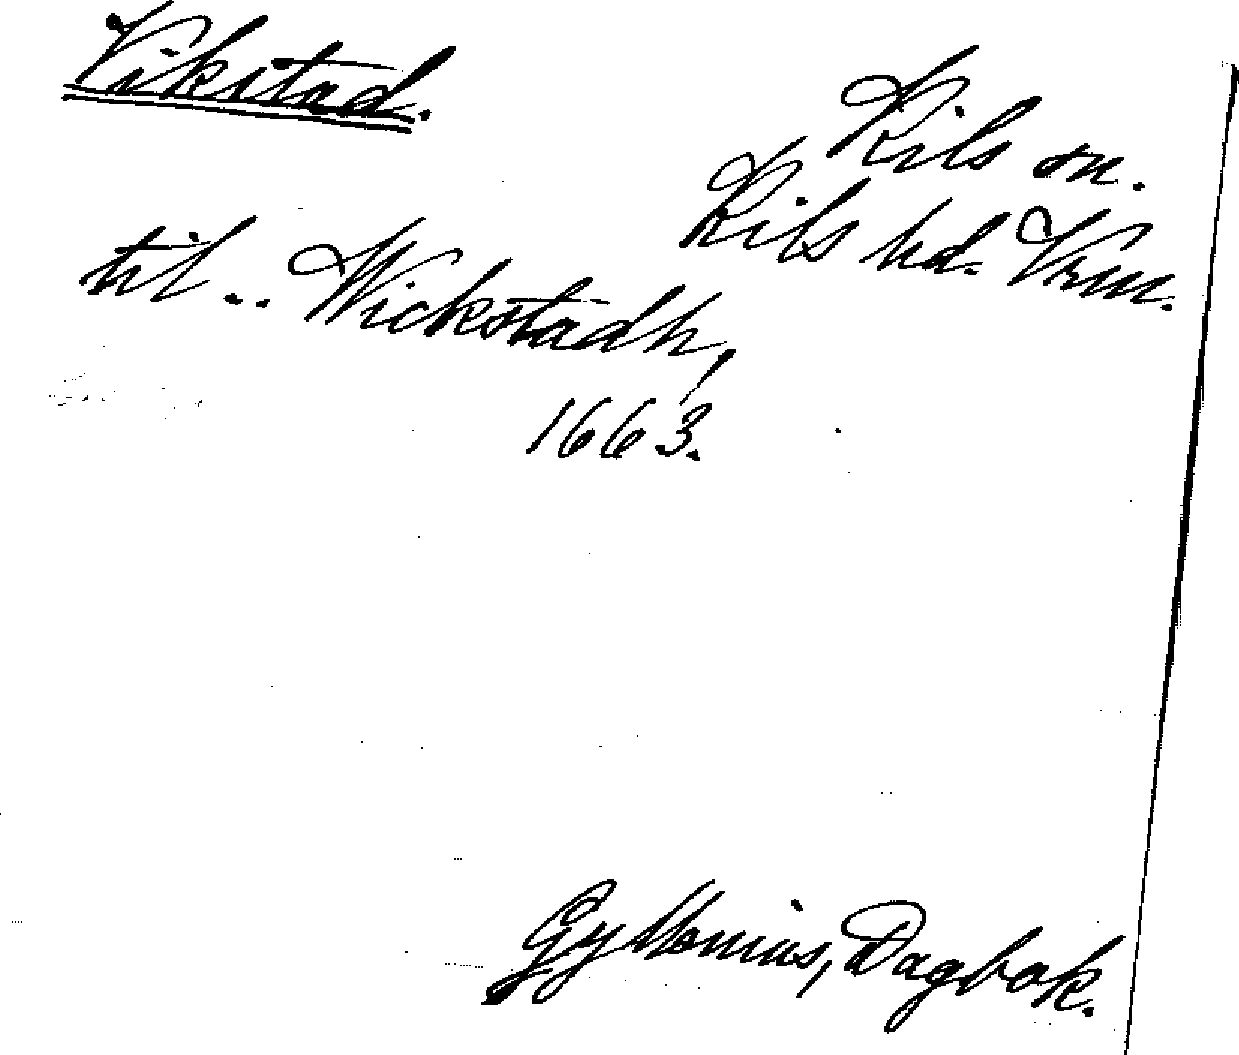 Vikstad.
Kils sn.
Kils hd. Vrm.
til .. Wickstadh,
1663.
Gyllenius, Dagbok.